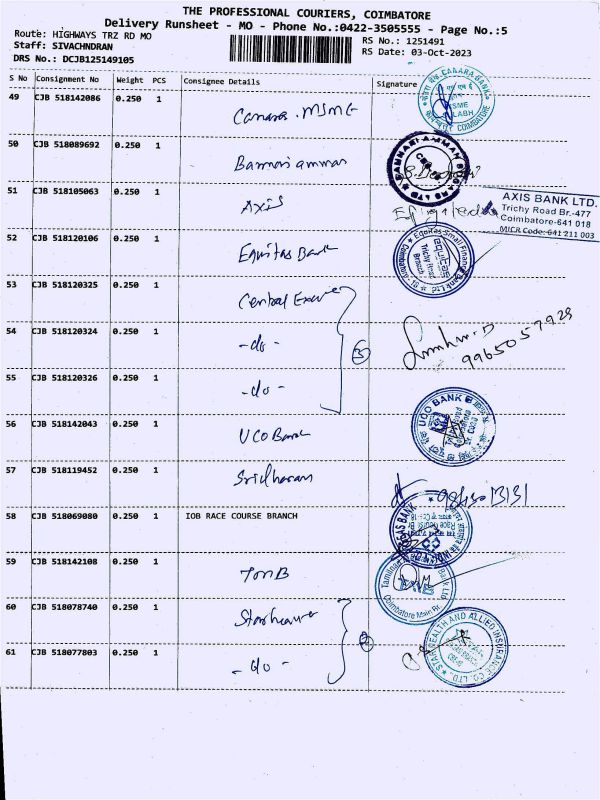 THE PROFESSIONAL COURIERS, COIMBATORE
Delivery Runsheet - MO - Phone No.:0422-3505555 - Page No.:5
Route: HIGHWAYS TRZ RD MO
RS No.: 1251491
Staff: SIVACHNDRAN
RS Date: 03-Oct-2023
DRS No.: DCJB125149105
S No Consignment No Weight PCS Consignee Details Signature
49 CJB 518142086 0.250 1 Canara MSME
CANARA BANK
COIMBATORE
50 CJB 518089692 0.250 1 Bannari amman
51 CJB 518105063 0.250 1 Axis
AXIS BANK LTD.
Trichy Road Br.-477
Coimbatore-641 018
MICR Code: 641 211 003
52 CJB 518120106 0.250 1 Equitas Bank
Equitas Small Finance Bank Ltd
equitas
Trichy Road
Branch
53 CJB 518120325 0.250 1 Central
54 CJB 518120324 0.250 1 -do-
3
9965057929
55 CJB 518120326 0.250 1 -do-
56 CJB 518142043 0.250 1 UCO Bank
UCO BANK
57 CJB 518119452 0.250 1 Sridharan
58 CJB 518069080 0.250 1 IOB RACE COURSE BRANCH
59 CJB 518142108 0.250 1 TMB
Coimbatore Main Br.
60 CJB 518078740 0.250 1
2
61 CJB 518077803 0.250 1 -do-
STAR HEALTH AND ALLIED INSURANCE CO. LTD.